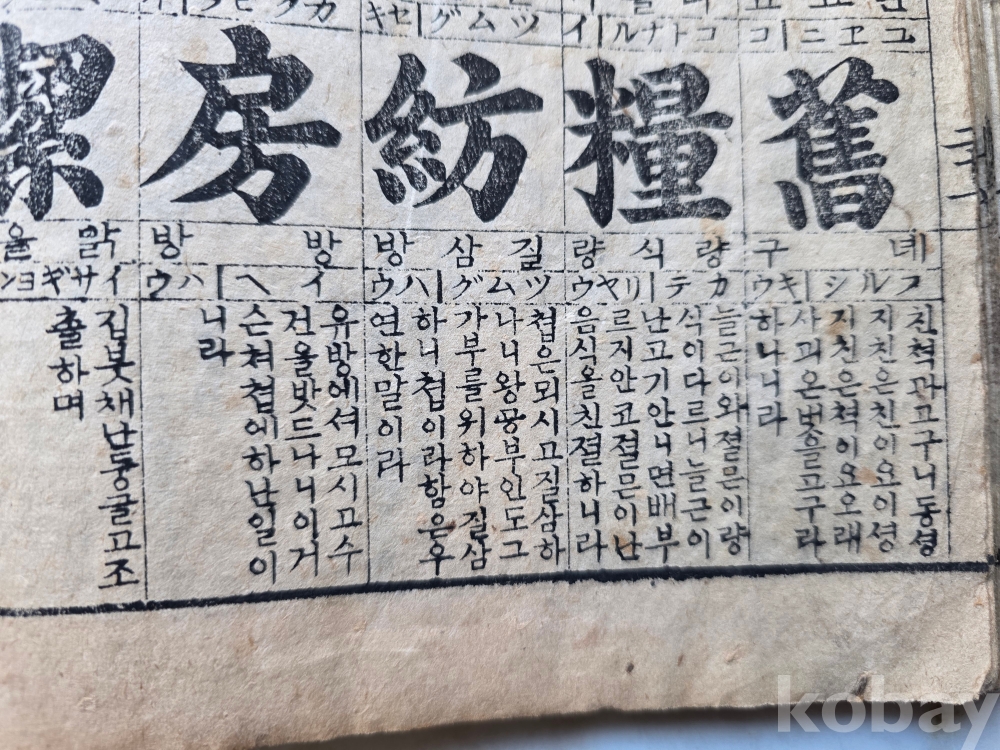 ユヱニ|コ
コトナル|イ
ツムグ|セキ
舊
糧
紡
房
녜 구
량식 량
질삼 방
방 방
맑을
フルシ|キウ
カテ|リヤウ
ツムグ|ハウ
イヘ|ハウ
イサギヨ
친척과고구니동셩
지친은친이요이셩
지친은척이요오래
사괴온벗을고구라
하나니라
늘근이와졀믄이량
식이다르니늘근이
난고기안니면배부
르지안코졀믄이난
음식을친졀하니라
첩은뫼시고질삼하
나니왕공부인도그
가부를위하야질삼
하니첩이라함은우
연한말이라
유방에셔모시고수
건을밧드나니이거
슨쳐첩에하난일이
니라
집붓채난둥굴고조
출하며
kobay